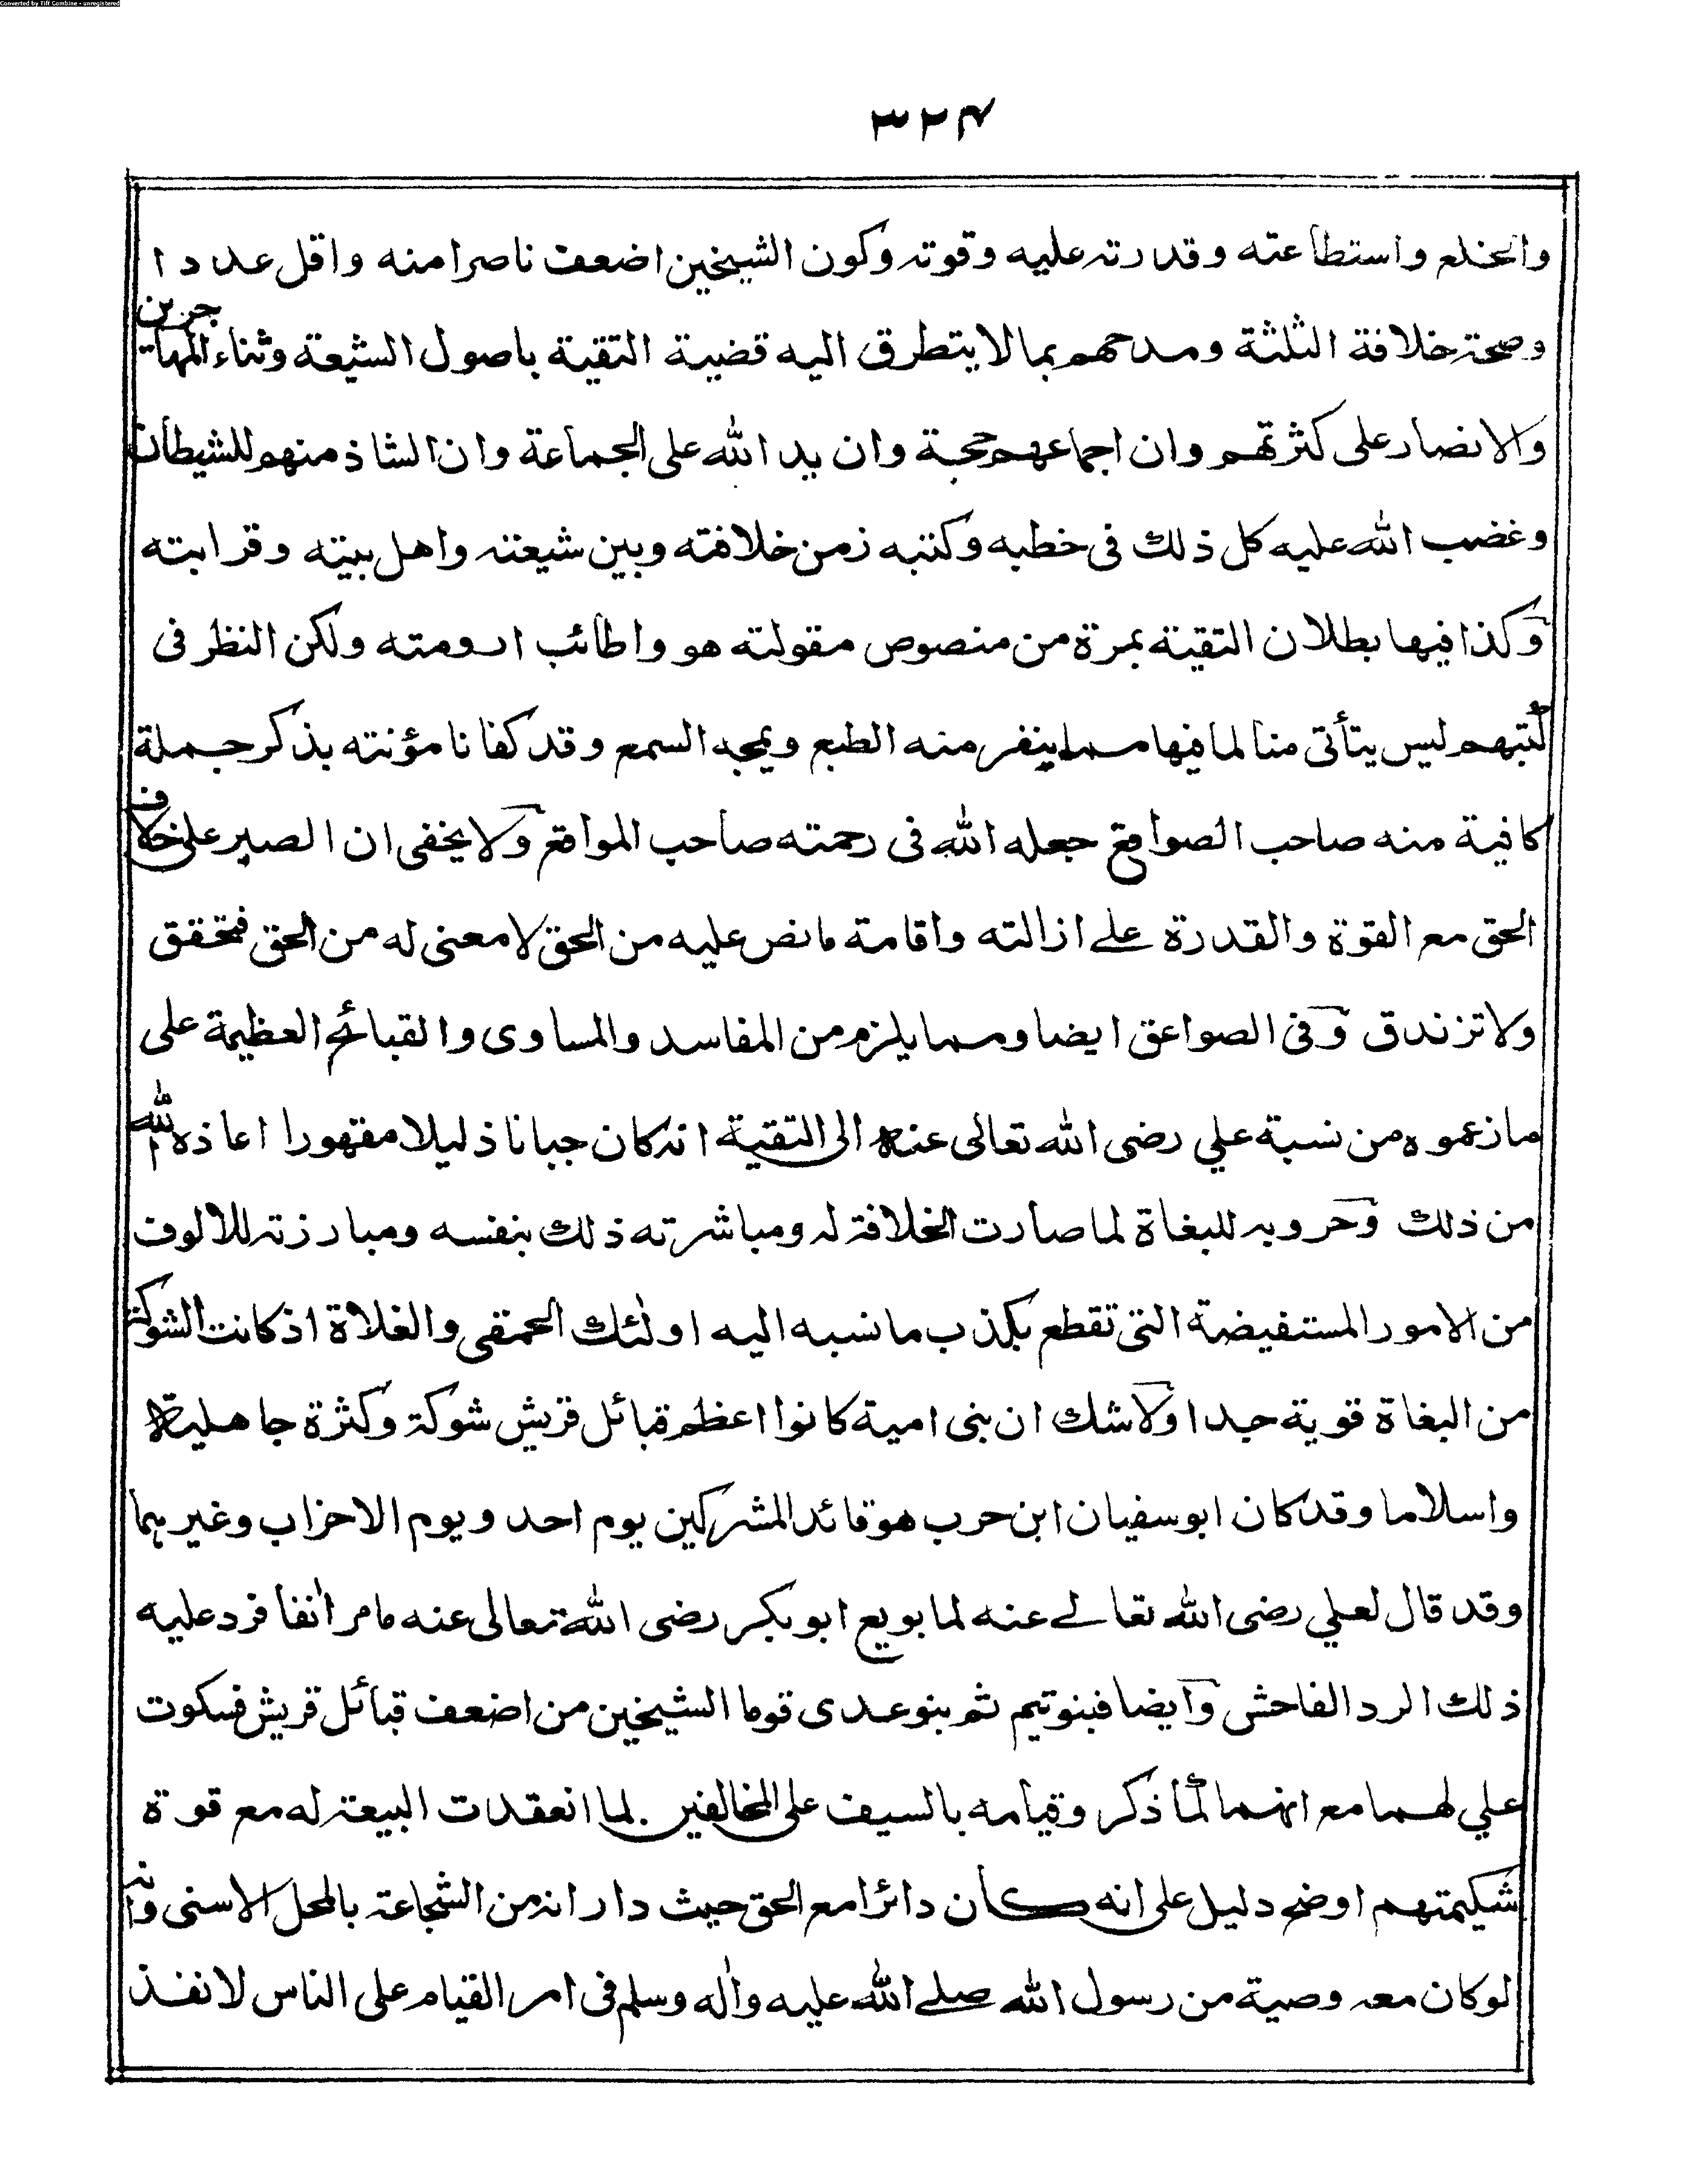 Converted by Tiff Combine - unregistered
٣٢٤
والخلع واستطاعته وقدرته عليه وقوته وكون الشيخين اضعف ناصرا منه واقل عددا
وصحة خلافة الثلثة ومدحهم بما لا يتطرق اليه قضية التقية باصول الشيعة وثناء المهاجرين
والانصار على كثرتهم وان اجماعهم حجة وان يد الله على الجماعة وان الشاذ منهم للشيطان
وغضب الله عليه كل ذلك فى خطبه وكتبه زمن خلافته وبين شيعته واهل بيته وقرابته
وكذا فيها بطلان التقية بمرة من منصوص مقولته هو واطائب ارومته ولكن النظر فى
كتبهم ليس يتأتى منا لما فيها مما ينفر منه الطبع ويمجه السمع وقد كفانا مؤنته بذكر جملة
كافية منه صاحب الصواقع جعله الله فى رحمته صاحب المواقع ولا يخفى ان الصبر على خلاف
الحق مع القوة والقدرة على ازالته واقامة ما نص عليه من الحق لا معنى له من الحق فتحقق
ولا تزندق وفى الصواعق ايضا ومما يلزم من المفاسد والمساوى والقبائح العظيمة على
ما زعموه من نسبة علي رضى الله تعالى عنه الى التقية انه كان جبانا ذليلا مقهورا اعاذه الله
من ذلك وحروبه للبغاة لما صارت الخلافة له ومباشرته ذلك بنفسه ومبارزته للالوف
من الامور المستفيضة التى تقطع بكذب ما نسبه اليه اولئك الحمقى والغلاة اذ كانت الشوكة
من البغاة قوية جدا ولا شك ان بنى امية كانوا اعظم قبائل قريش شوكة وكثرة جاهلية
واسلاما وقد كان ابو سفيان ابن حرب هو قائد المشركين يوم احد ويوم الاحزاب وغيرهما
وقد قال لعلي رضى الله تعالى عنه لما بويع ابو بكر رضى الله تعالى عنه ما مر انفا فرد عليه
ذلك الرد الفاحش وايضا فبنو تيم ثم بنو عدى قوما الشيخين من اضعف قبائل قريش فسكوت
علي لهما مع انهما كما ذكر وقيامه بالسيف على المخالفين لما انعقدت البيعة له مع قوة
شكيمتهم اوضح دليل على انه كان دائرا مع الحق حيث دار انه من الشجاعة بالمحل الاسنى وانه
لو كان معه وصية من رسول الله صلى الله عليه واله وسلم فى امر القيام على الناس لانفذ